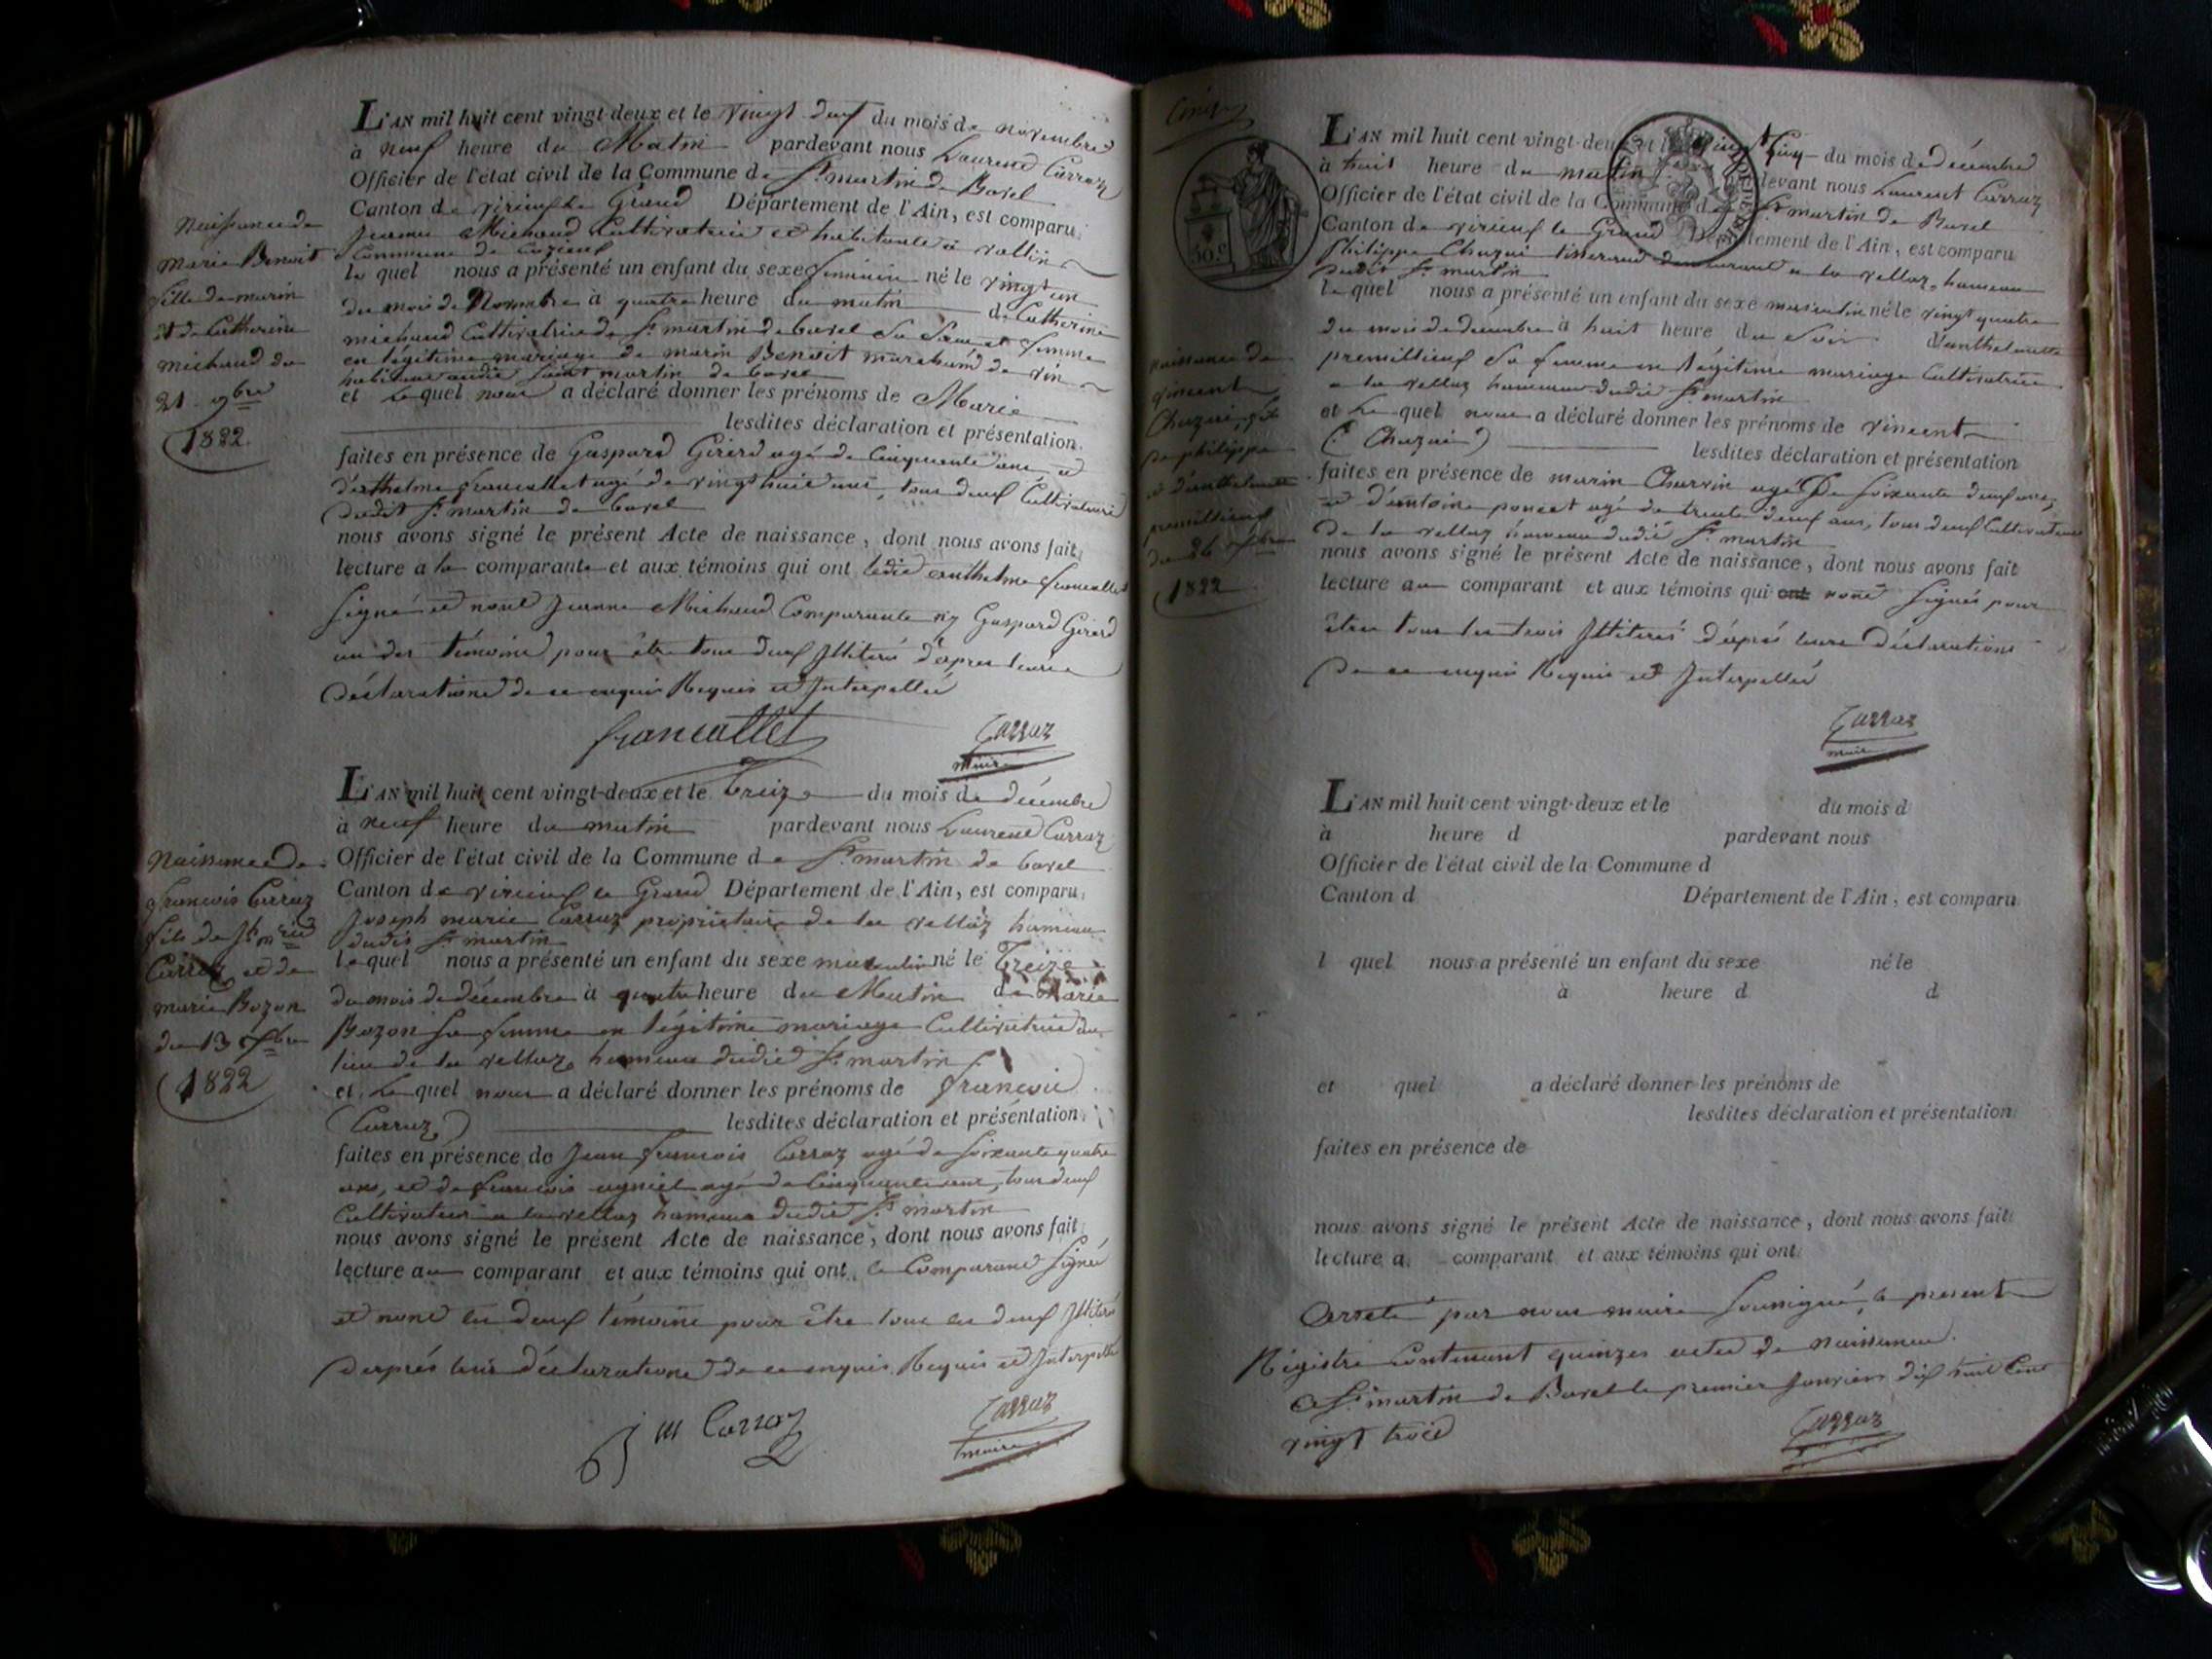 L'AN mil huit cent vingt-deux et le vingt deux du mois de novembre
à neuf heure du Matin pardevant nous Laurend Carraz
Officier de l'état civil de la Commune de St martin de Bavel
Canton de virieux le Grand Département de l'Ain, est comparu
Jeanne Michaud Cultivatrice et habitante à vollin
Commune de Cuzieux
la quel nous a présenté un enfant du sexe feminin né le vingt un
du mois de Novembre à quatre heure du matin de Catherine
michaud Cultivatrice de St martin de bavel Sa Sœur et femme
en légitime mariage de marin Benoit marchand de vin
habitant audit Saint martin de bavel
et Le quel nous a déclaré donner les prénoms de Marie
lesdites déclaration et présentation
faites en présence de Gaspard Girerd agé de Cinquante ans et
d'anthelme francallet agé de vingt huit ans, tous deux Cultivateurs
dudit St martin de bavel
nous avons signé le présent Acte de naissance, dont nous avons fait
lecture a la comparante et aux témoins qui ont ledit anthelme francallet
Signé et nont Jeanne Michaud Comparante ny Gaspard Girerd
un des témoins pour être tous deux Illiterés d'apres leurs
déclarations de ce enquis Requis et Interpellés
francallet Carraz
maire
Naissance de
Marie Benoit
fille de marin
et de Catherine
michaud du
21 9bre
1822
L'AN mil huit cent vingt-deux et le Treize du mois de décembre
à neuf heure du matin pardevant nous Laurend Carraz
Officier de l'état civil de la Commune de St martin de bavel
Canton de virieux le Grand Département de l'Ain, est comparu
Joseph marie Carraz propriétaire de la vellaz hameau
dudit St martin
le quel nous a présenté un enfant du sexe masculin né le Treize
du mois de décembre à quatre heure du Matin de Marie
Bozon Sa femme en légitime mariage Cultivatrice au
lieu de la vellaz hameau dudit St martin
et Le quel nous a déclaré donner les prénoms de francois
(Carraz) lesdites déclaration et présentation
faites en présence de Jean francois Carraz agé de Soixante quatre
ans, et de francois agniel agé de Cinquante ans, tous deux
Cultivateurs a la vellaz hameau dudit St martin
nous avons signé le présent Acte de naissance, dont nous avons fait
lecture au comparant et aux témoins qui ont le Comparant Signé
et nont les deux témoins pour être tous les deux Illiterés
d'après leurs déclarations de ce enquis Requis et Interpellés
J M Carraz Carraz
maire
Naissance de
francois Carraz
fils de Jh mrie
Carraz et de
marie Bozon
du 13 Xbre
1822
Cinq
50 c
L'AN mil huit cent vingt-deux et le vingt Cinq du mois de décembre
à huit heure du matin pardevant nous Laurent Carraz
Officier de l'état civil de la Commune de St martin de Bavel
Canton de virieux le Grand Département de l'Ain, est comparu
Philippe Chazai tisserand demeurant a la vellaz, hameau
dudit St martin
le quel nous a présenté un enfant du sexe masculin né le vingt quatre
du mois de décembre à huit heure du Soir d'anthelmette
premillieux Sa femme en légitime mariage Cultivatrice
a la vellaz hameau dudit St martin
et Le quel nous a déclaré donner les prénoms de vincent
(Chazai) lesdites déclaration et présentation
faites en présence de marin Charvin agé De Soixante deux ans,
et d'antoine poncet agé de trente deux ans, tous deux Cultivateurs
de la vellaz hameau dudit St martin
nous avons signé le présent Acte de naissance, dont nous avons fait
lecture au comparant et aux témoins qui ont nont Signés pour
être tous les trois Illiterés d'après leurs déclarations
De ce enquis Requis et Interpellés
Carraz
maire
Naissance de
vincent
Chazai, fils
de philippe
et d'anthelmette
premillieux
du 26 Xbre
1822
L'AN mil huit cent vingt-deux et le du mois d
à heure d pardevant nous
Officier de l'état civil de la Commune d
Canton d Département de l'Ain, est comparu
l quel nous a présenté un enfant du sexe né le
à heure d d
et quel a déclaré donner les prénoms de
lesdites déclaration et présentation
faites en présence de
nous avons signé le présent Acte de naissance, dont nous avons fait
lecture a comparant et aux témoins qui ont
Arreté par nous maire Soussigné, le present
Régistre Contenant quinzes actes de naissance
a St martin de Bavel le premier Janvier dix huit Cent
vingt trois
Carraz